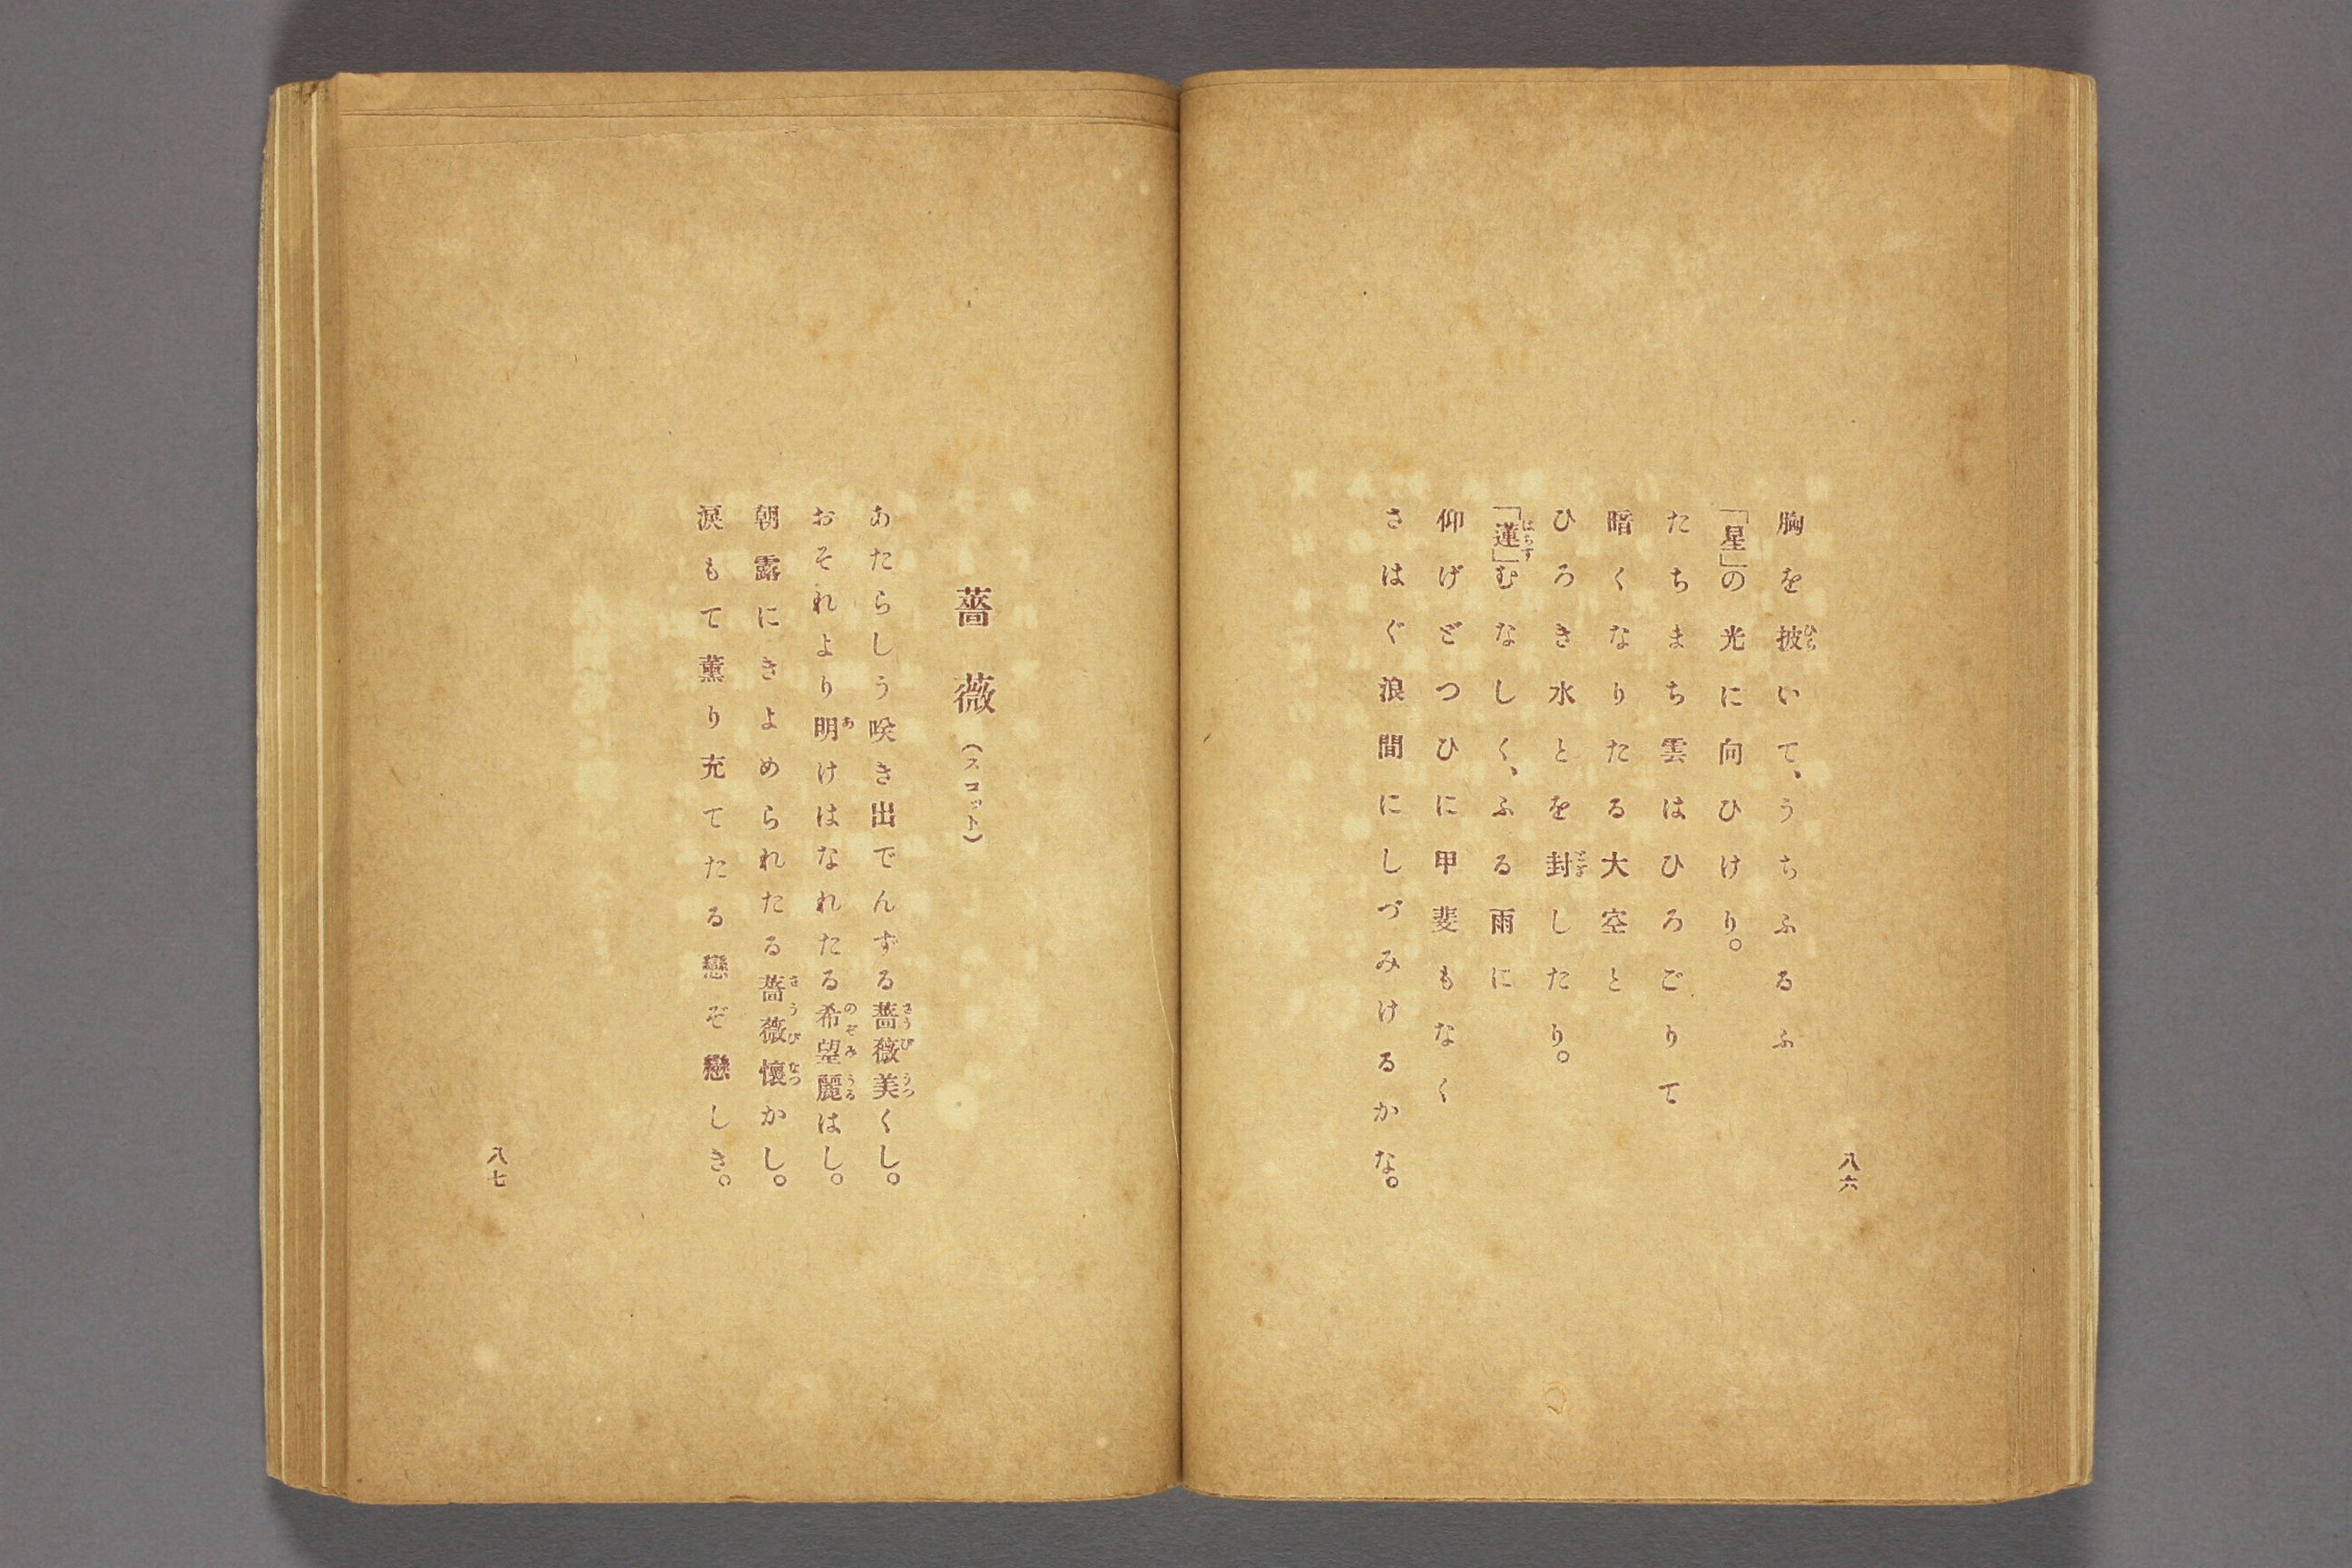 八六
胸を披いて、うちふるふ
「星」の光に向ひけり。
たちまち雲はひろごりて
暗くなりたる大空と
ひろき水とを封じたり。
「蓮」むなしく、ふる雨に
仰げどつひに甲斐もなく
さはぐ浪間にしづみけるかな。
薔薇(スコット)
あたらしう咲き出でんずる薔薇美くし。
おそれより明けはなれたる希望麗はし。
朝露にきよめられたる薔薇懷かし。
涙もて薫り充てたる戀ぞ戀しき。
八七